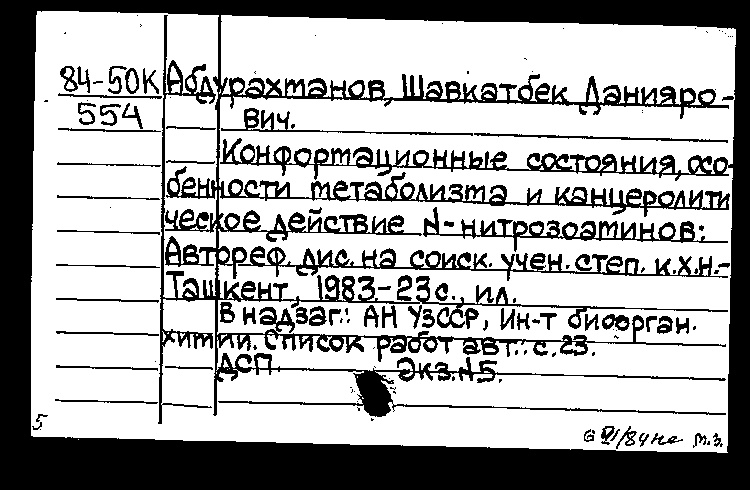 84-50К Абдурахманов, Шавкатбек Данияро-
554 вич.
Конформационные состояния, осо-
бенности метаболизма и канцеролити
ческое действие N-нитрозоаминов:
Автореф. дис. на соиск. учен. степ. к.х.н.-
Ташкент, 1983.-23 с., ил.
В надзаг.: АН УзССР, Ин-т биоорган.
химии. Список работ авт.: с. 23.
ДСП Экз. N5.
5 м.з.